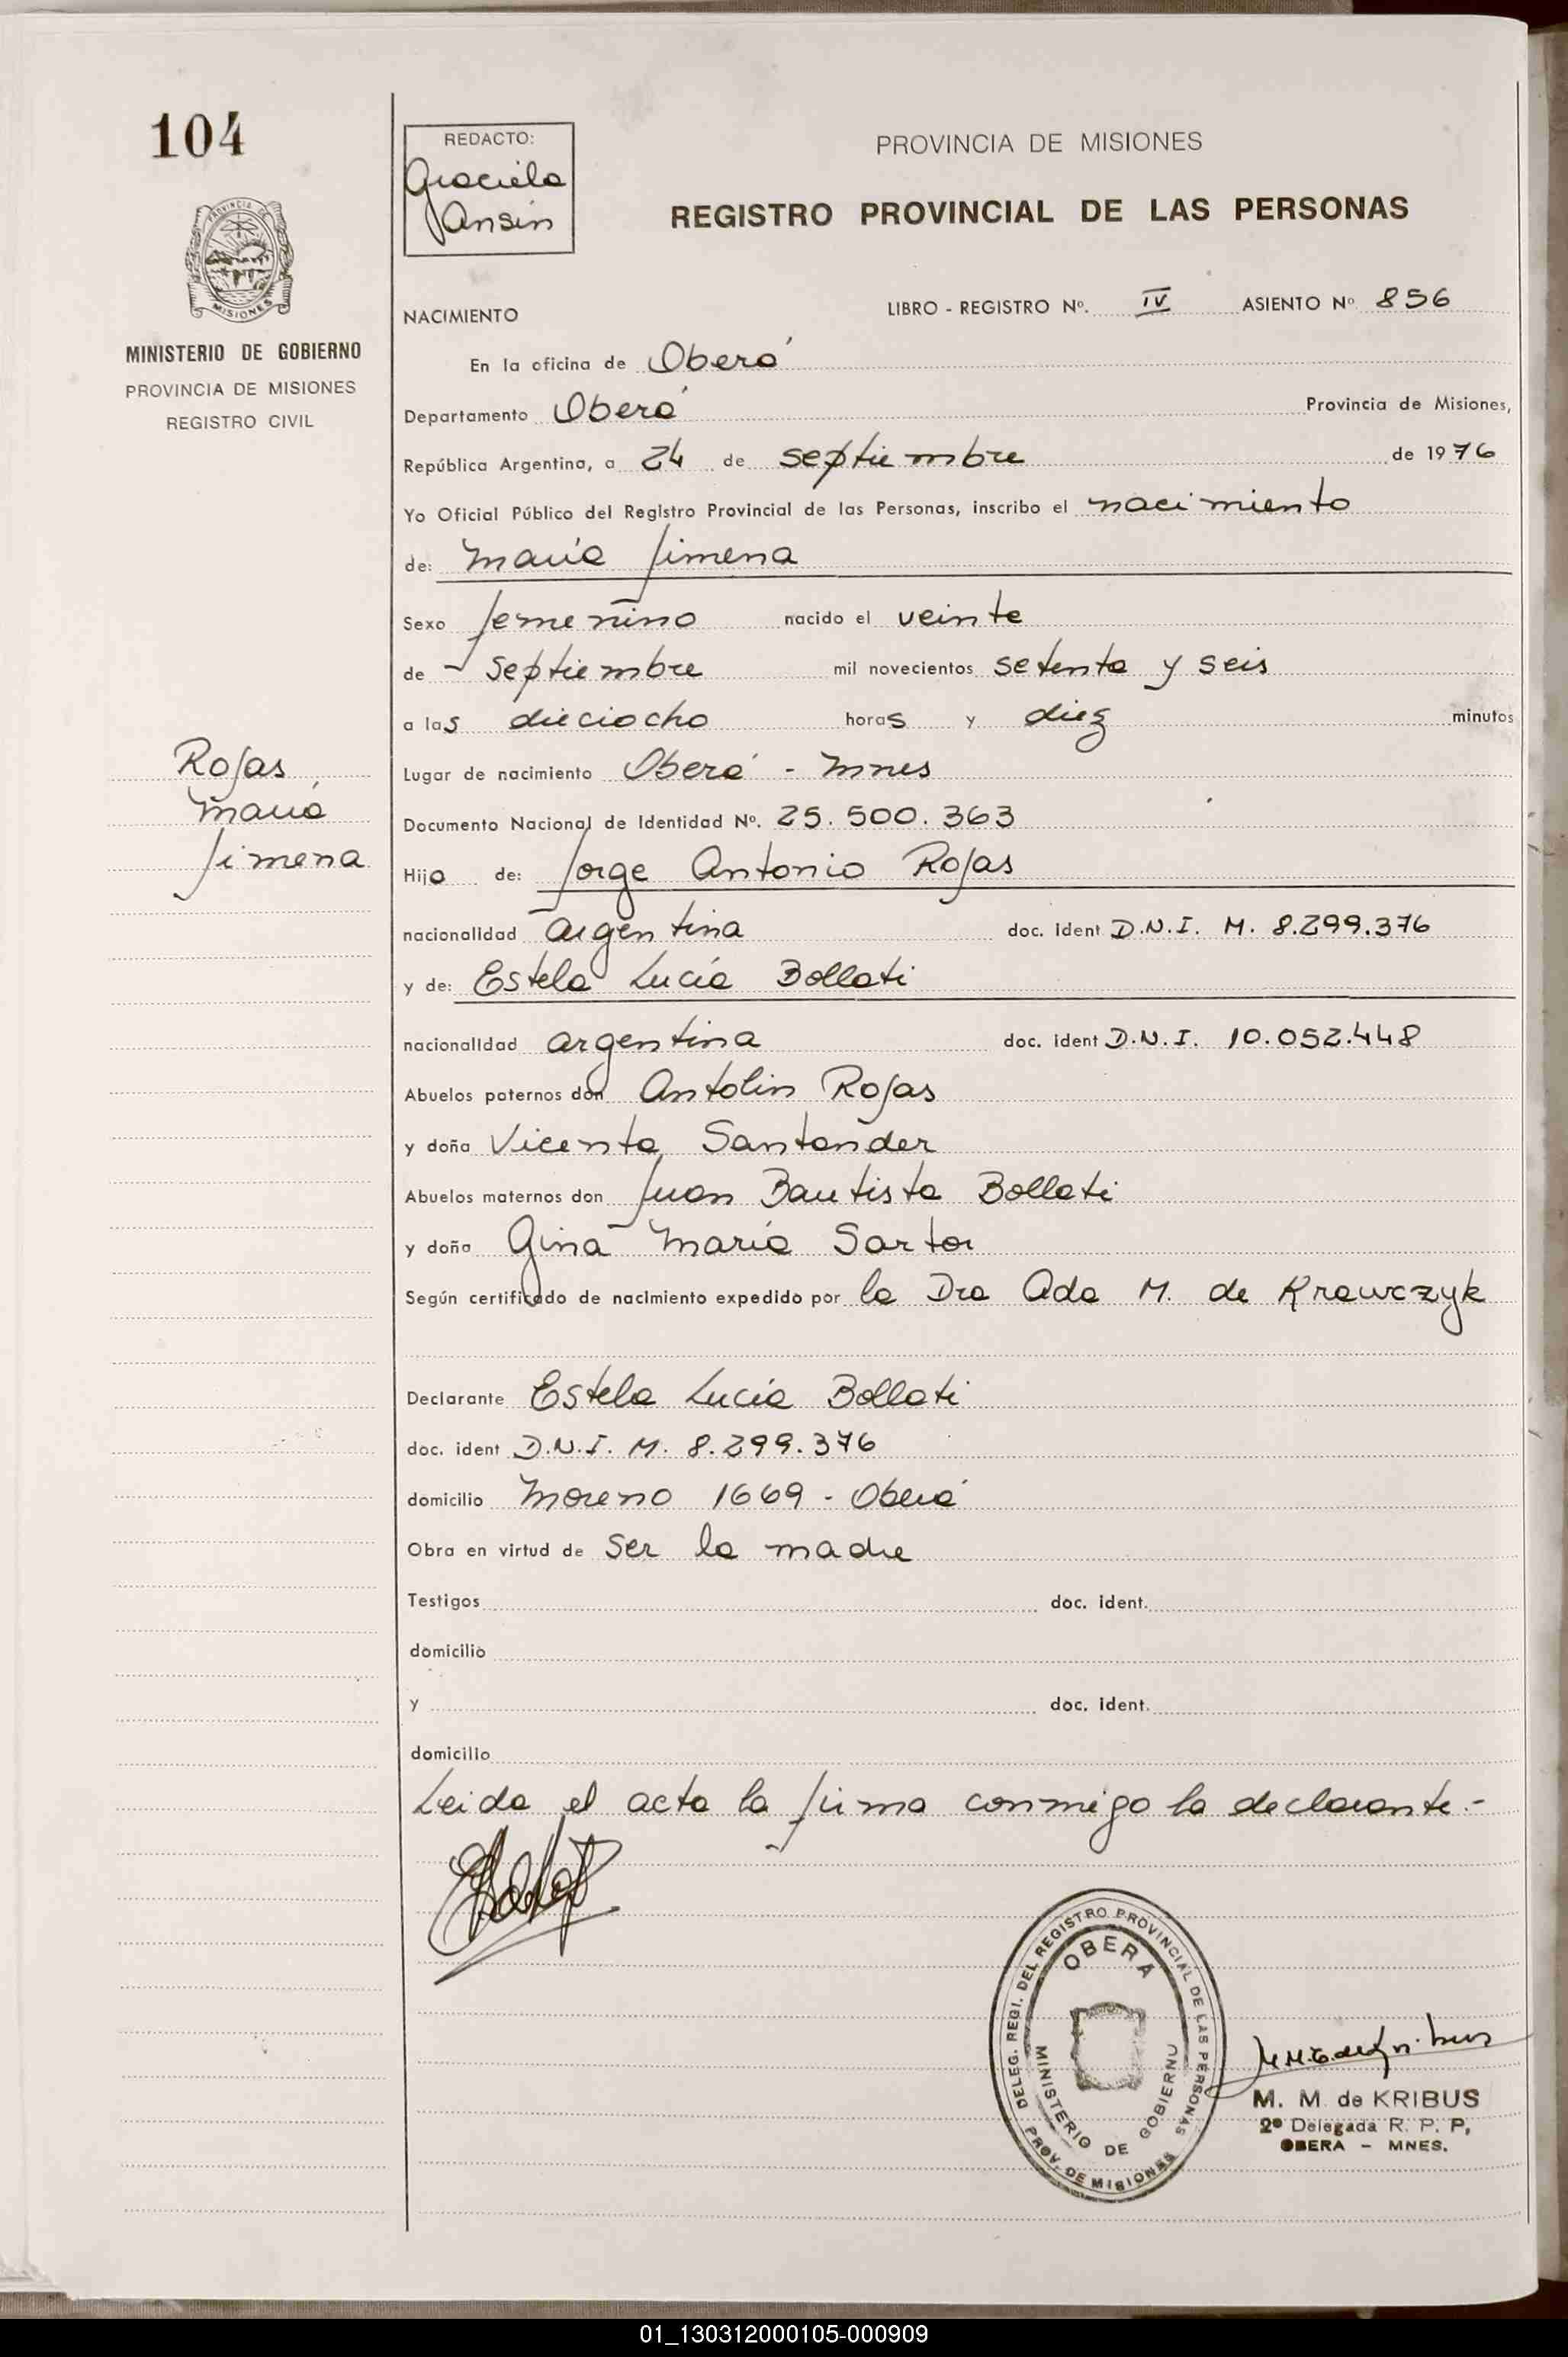 104
PROVINCIA DE
MISIONES
MINISTERIO DE GOBIERNO
PROVINCIA DE MISIONES
REGISTRO CIVIL
REDACTO:
Graciela
Ansin
PROVINCIA DE MISIONES
REGISTRO PROVINCIAL DE LAS PERSONAS
NACIMIENTO
LIBRO - REGISTRO Nº. IV ASIENTO Nº 856
En la oficina de Oberá
Departamento Oberá Provincia de Misiones,
República Argentina, a 24 de septiembre de 1976
Yo Oficial Público del Registro Provincial de las Personas, inscribo el nacimiento
de: María Jimena
Sexo femenino nacido el veinte
de septiembre mil novecientos setenta y seis
a las dieciocho horas y diez minutos
Rojas
María
Jimena
Lugar de nacimiento Oberá - Mnes
Documento Nacional de Identidad Nº. 25.500.363
Hija de: Jorge Antonio Rojas
nacionalidad argentina doc. ident D.N.I. M. 8.299.376
y de: Estela Lucía Bollati
nacionalidad argentina doc. ident D.N.I. 10.052.448
Abuelos paternos don Antolin Rojas
y doña Vicenta Santander
Abuelos maternos don Juan Bautista Bollati
y doña Gina María Sartor
Según certificado de nacimiento expedido por la Dra Ada M. de Krawczyk
Declarante Estela Lucía Bollati
doc. ident D.N.I. M. 8.299.376
domicilio Moreno 1669 - Oberá
Obra en virtud de ser la madre
Testigos doc. ident.
domicilio
y doc. ident.
domicilio
Leida el acta la firma conmigo la declarante.-
DELEG. REGI. DEL REGISTRO PROVINCIAL DE LAS PERSONAS
PROV. DE MISIONES
OBERA
MINISTERIO DE GOBIERNO
M. M. de KRIBUS
2º Delegada R. P. P.
OBERA - MNES.
01_130312000105-000909